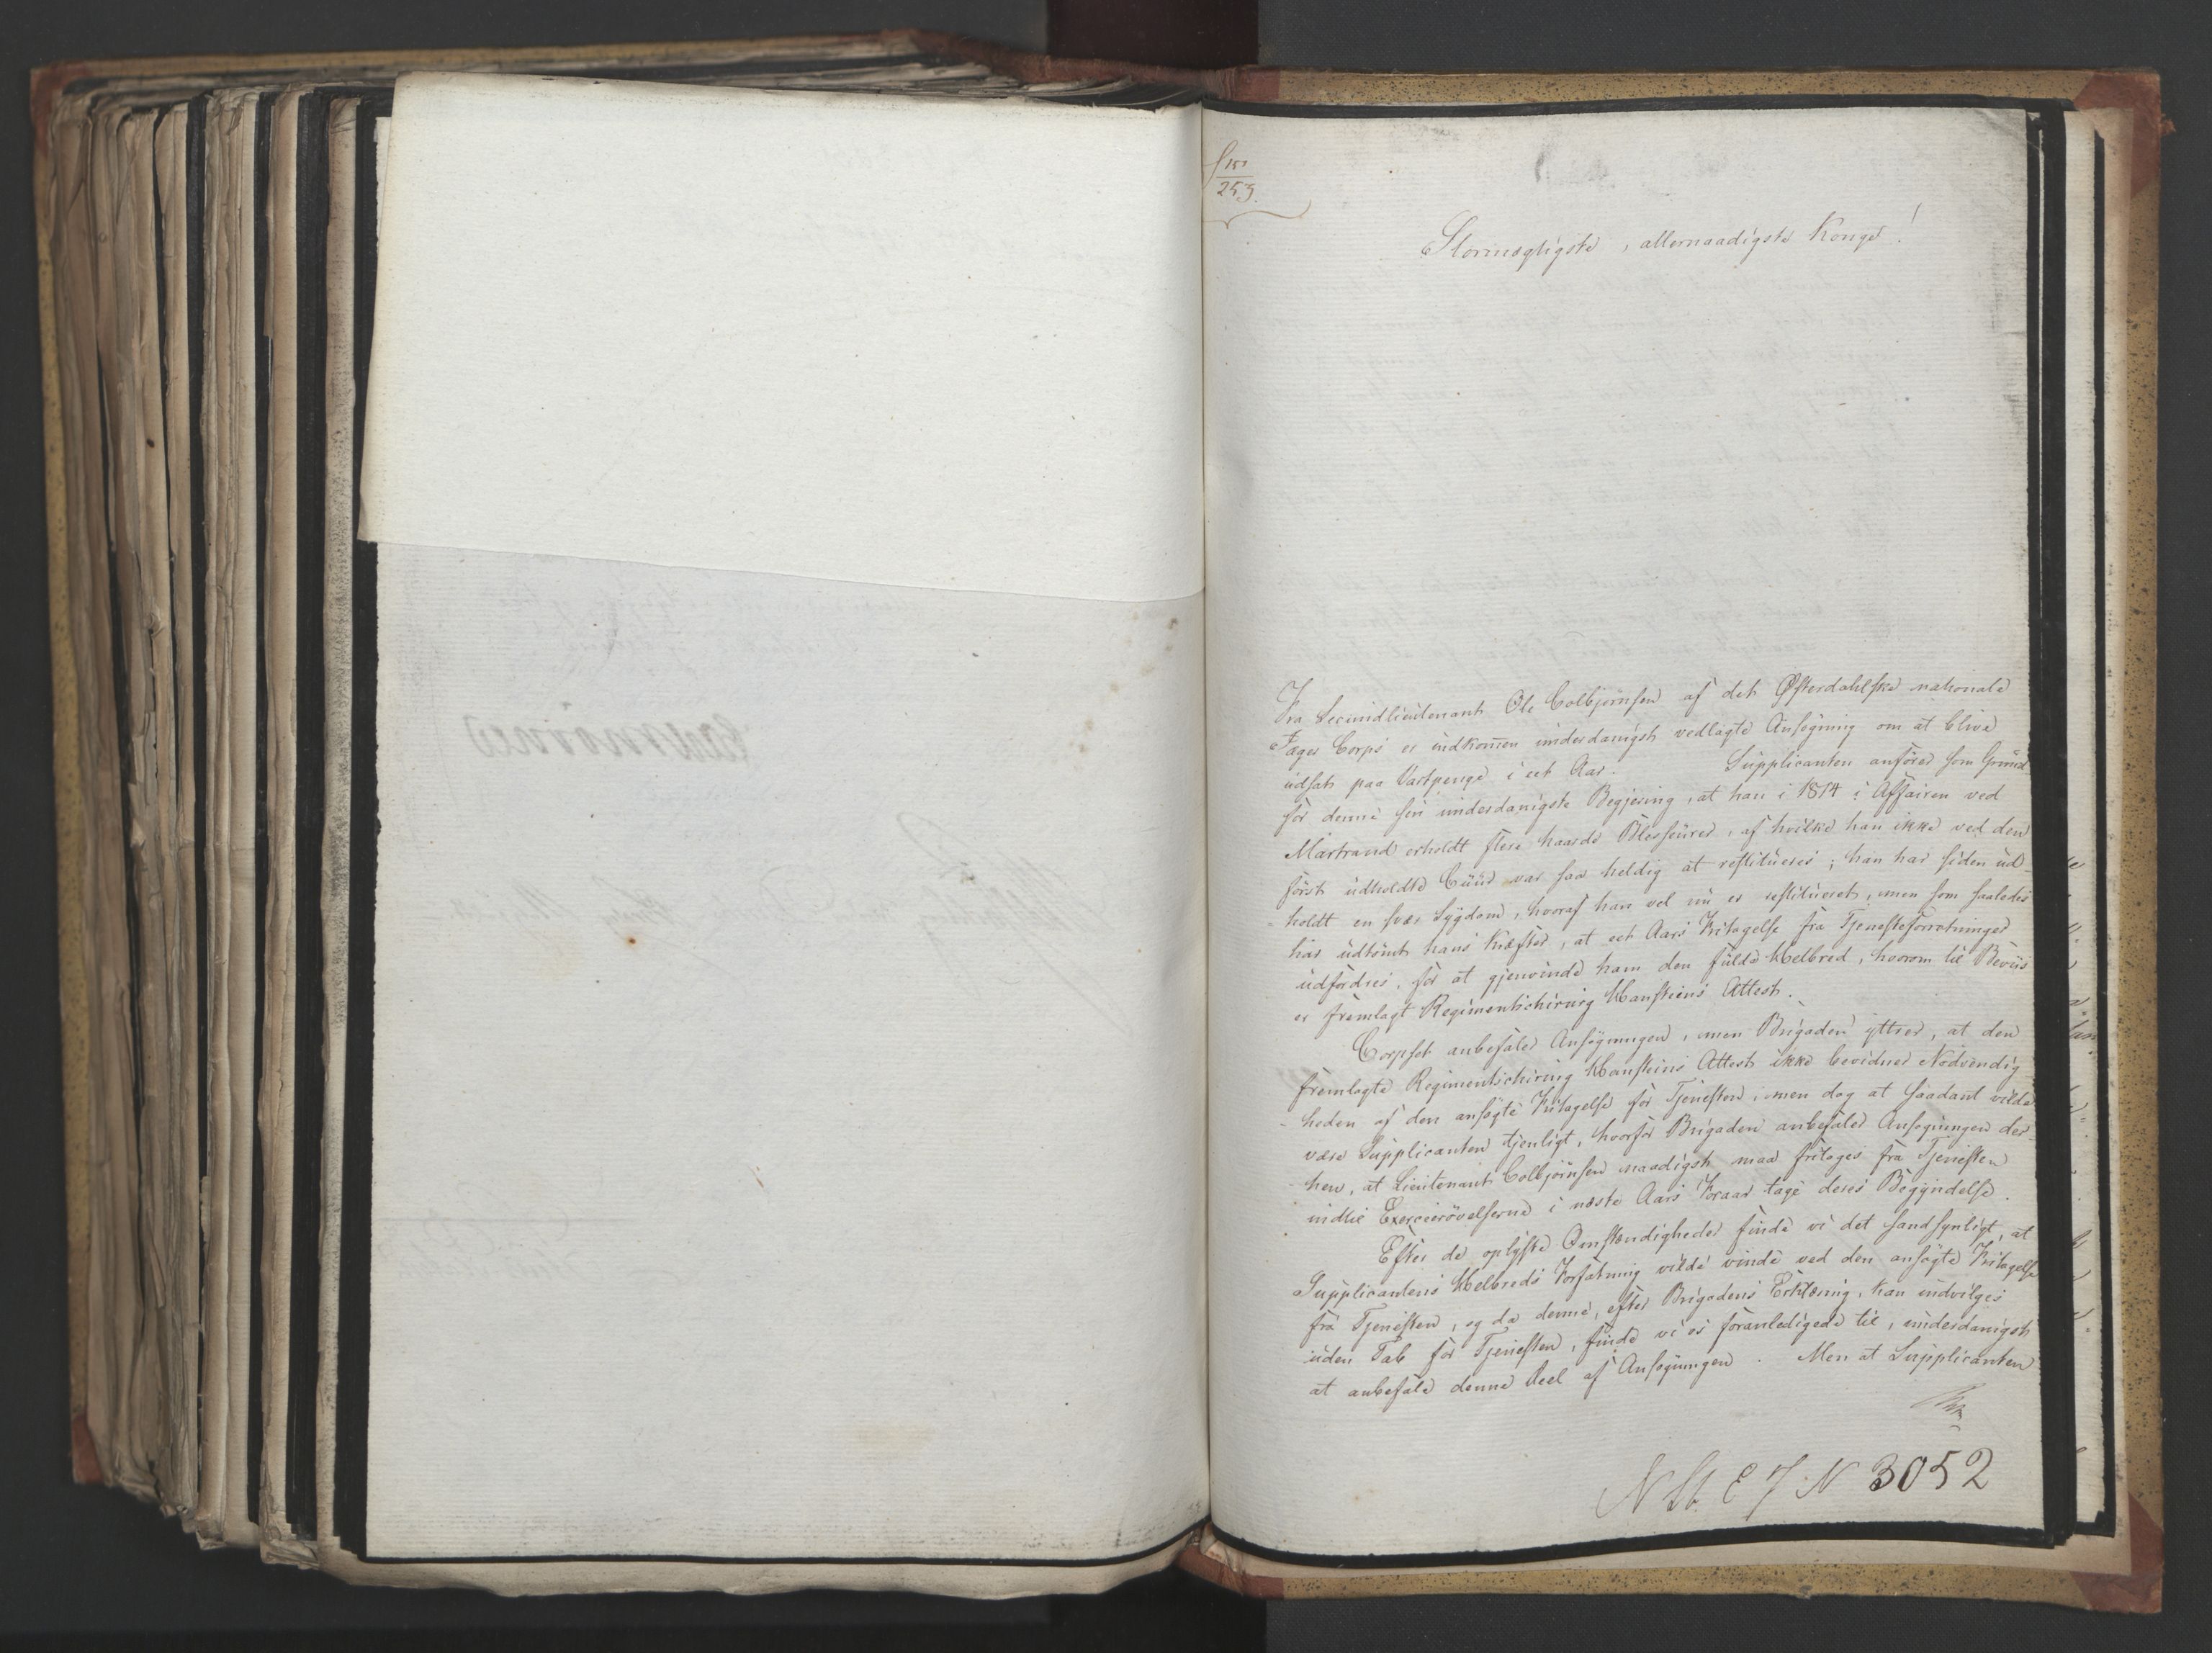 151
253.
Stormægtigste, allernaadigste Konge!
Fra Secundlieutenant Ole Colbjørnsen af det Østerdahlske nationale
Jæger Corps er indkommen underdanigst vedlagte Ansøgning om at blive
udsat paa Vartpenge i eet Aar. Supplicanten anfører som Grund
for denne sin underdanigste Begjering, at han i 1814 i Affairen ved
Martrand erholdt flere haarde Blessurer, af hvilke han ikke ved den
først udholdte Cuur var saa heldig at restitueres; han har siden ud-
holdt en svær Sygdom, hvoraf han vel nu er restitueret, men som saaledes
har udtømt hans Kræfter, at eet Aars Fritagelse fra Tjenesteforretninger
udfordres, for at gjenvinde ham den fulde Helbred, hvorom til Beviis
er fremlagt Regimentschirurg Hansteens Attest.
Corpset anbefaler Ansøgningen, men Brigaden yttrer, at den
fremlagte Regimentschirurg Hansteins Attest ikke bevidner Nødvendig-
heden af den ansøgte Fritagelse for Tjenesten, men dog at saadant vilde
være Supplicanten tjenligt, hvorfor Brigaden anbefaler Ansøgningen der-
hen, at Lieutenant Colbjørnsen naadigst maa fritages fra Tjenesten
indtil Exerceerøvelserne i næste Aars Foraar tage deres Begyndelse.
Efter de oplyste Omstændigheder finde vi det sandsynligt, at
Supplicantens Helbreds Forfatning vilde vinde ved den ansøgte Fritagelse
fra Tjenesten, og da denne, efter Brigadens Erklæring, kan indvilges
uden Tab for Tjenesten, finde vi os foranledigede til, underdanigst
at anbefale denne Deel af Ansøgningen. Men at Supplicanten
N 3052